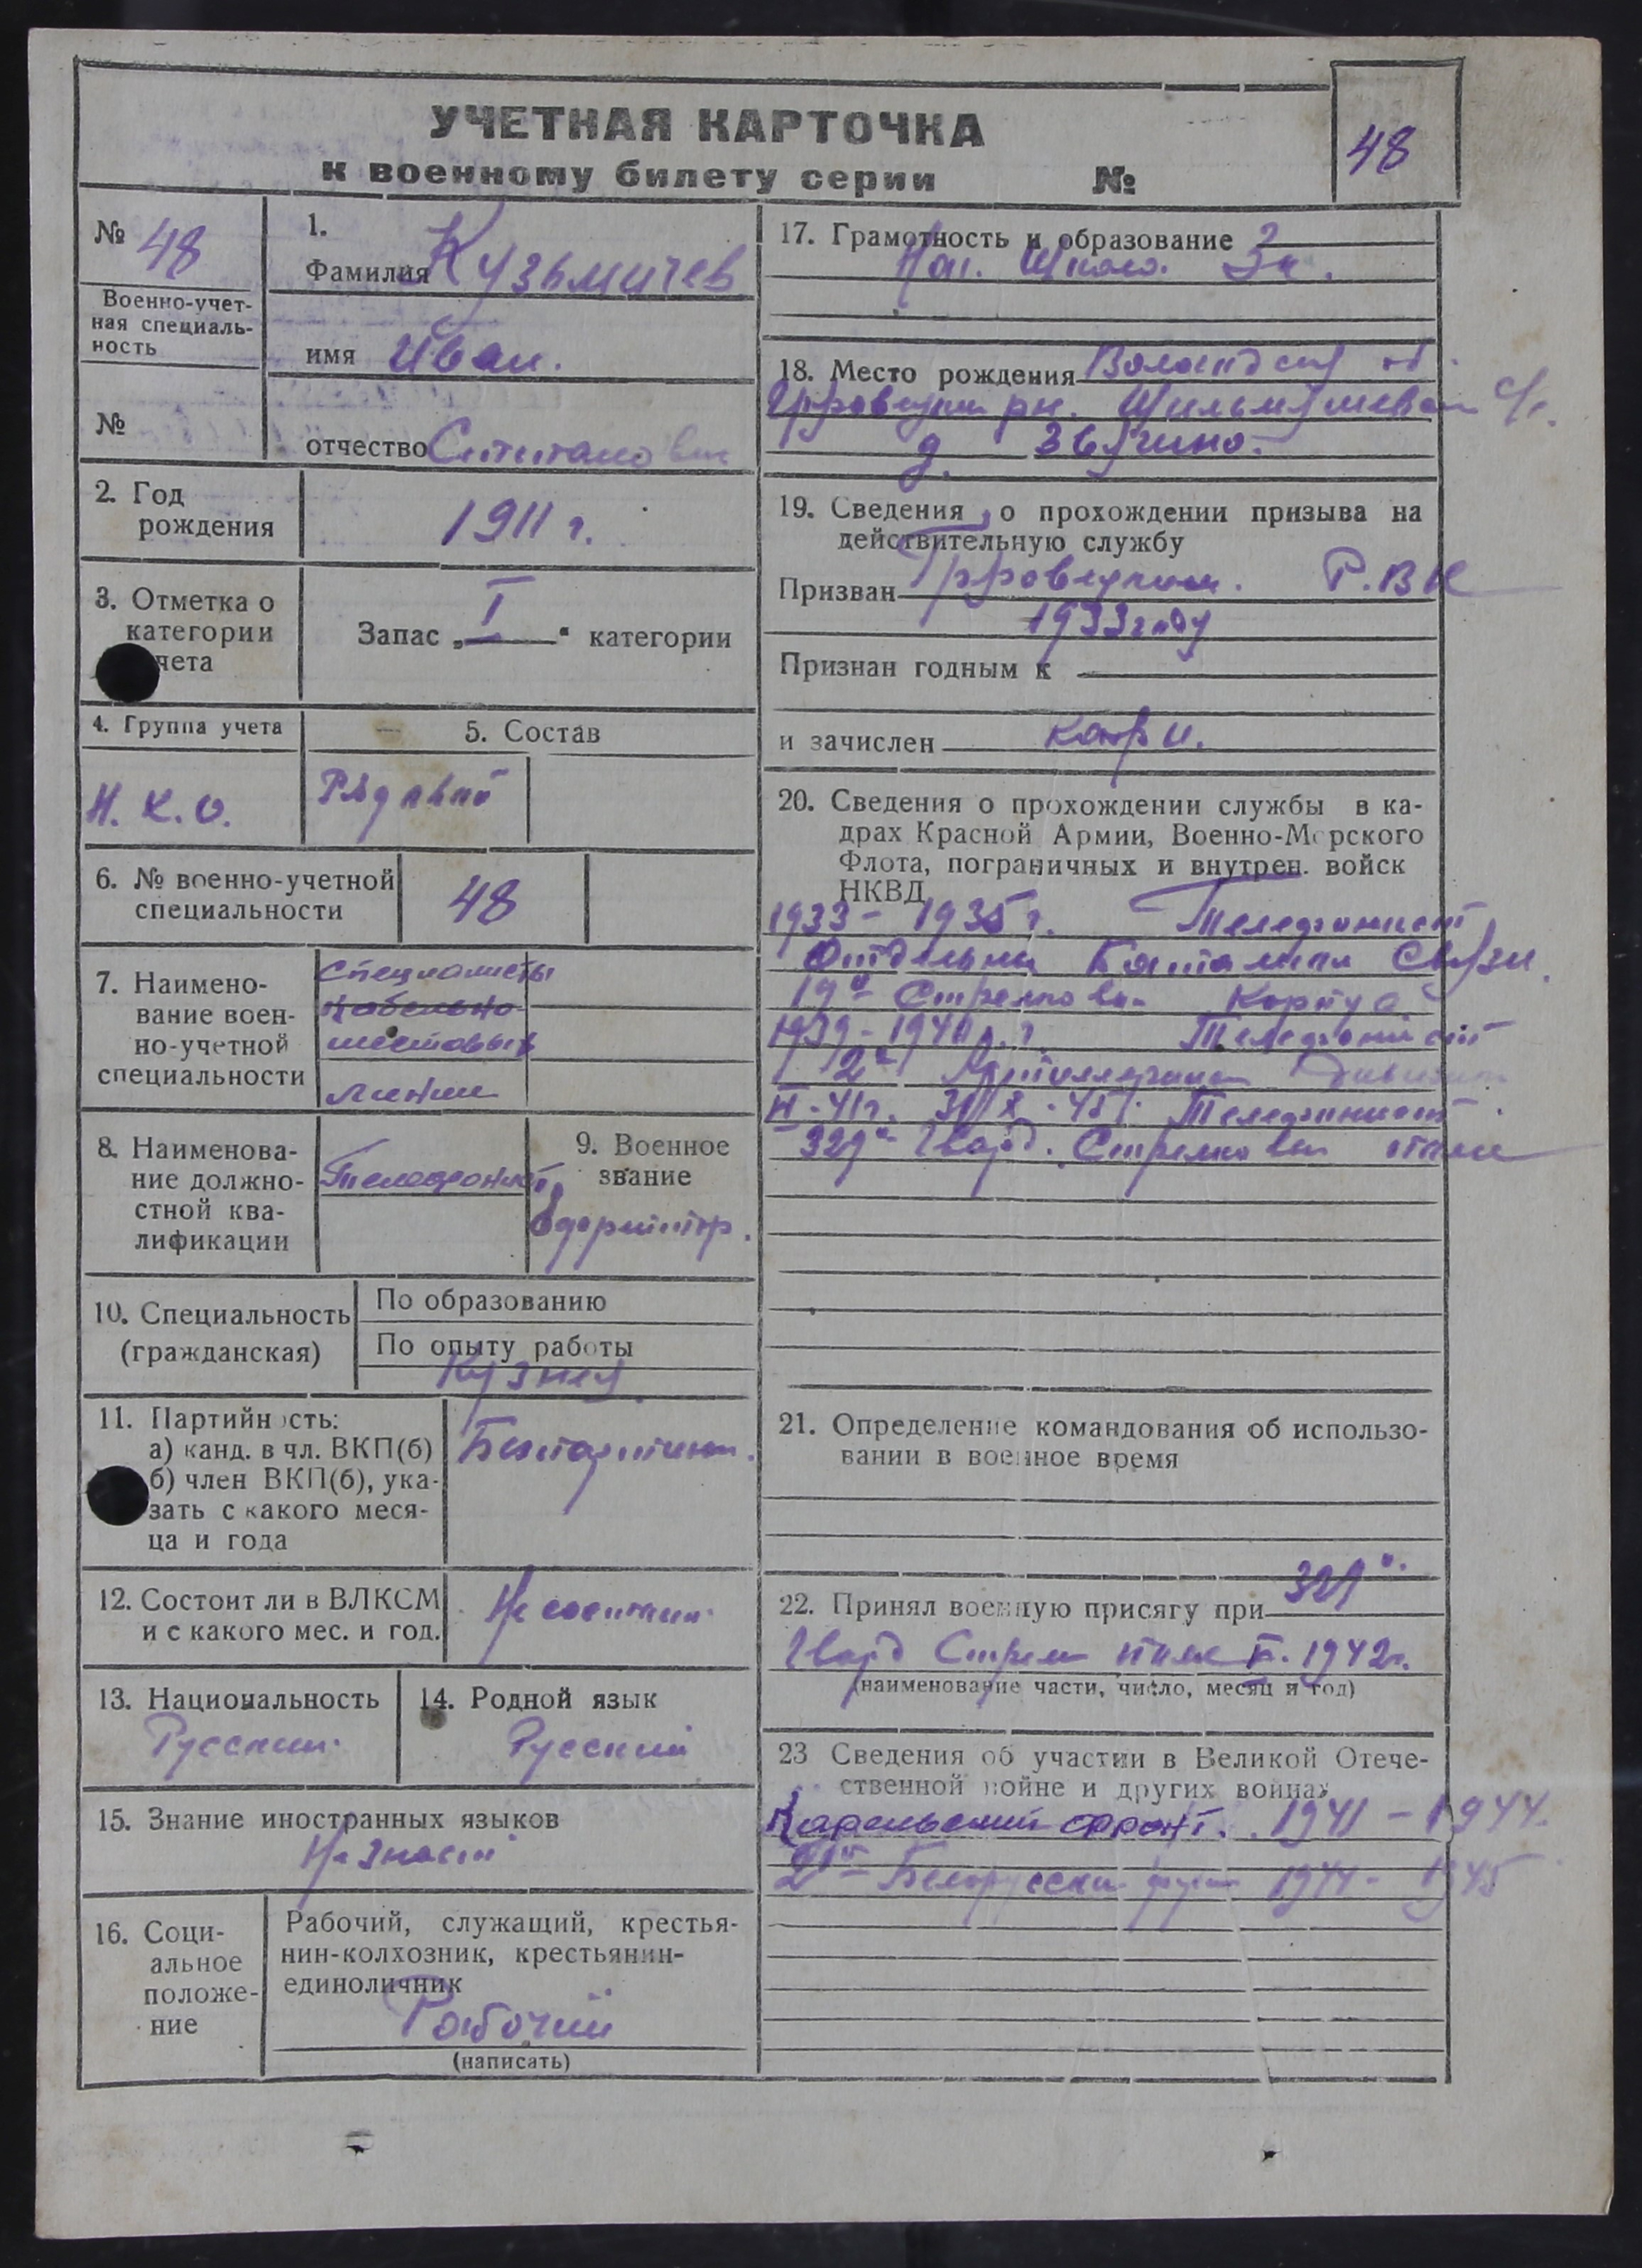 УЧЕТНАЯ КАРТОЧКА
к военному билету серии №
48
№ 48
Военно-учет-
ная специаль-
ность
№
1.
Фамилия Кузьмичев
имя Иван.
отчество
2. Год
рождения
1911 г.
3. Отметка о
категории
чета
Запас „I“ категории
4. Группа учета
Н. К. О.
5. Состав
Рядовой
6. № военно-учетной
специальности
48
7. Наимено-
вание воен-
но-учетной
специальности
специалисты
кабельно
шестовых
линии
8. Наименова-
ние должно-
стной ква-
лификации
Телефонист
9. Военное
звание
Ефрейтор.
10. Специальность
(гражданская)
По образованию
По опыту работы
Кузнец.
11. Партийность:
а) канд. в чл. ВКП(б)
б) член ВКП(б), ука-
зать с какого меся-
ца и года
Беспартийн.
12. Состоит ли в ВЛКСМ
и с какого мес. и год.
Не состоит
13. Национальность
Русский
14. Родной язык
Русский
15. Знание иностранных языков
Не знает
16. Соци-
альное
положе-
ние
Рабочий, служащий, крестья-
нин-колхозник, крестьянин-
единоличник
Рабочий
(написать)
17. Грамотность и образование
Нач. Школа. 3 к.
18. Место рождения
рн. с/с.
д.
19. Сведения о прохождении призыва на
действительную службу
Призван Р.ВК
1933 году
Признан годным к
и зачислен
20. Сведения о прохождении службы в ка-
драх Красной Армии, Военно-Морского
Флота, пограничных и внутрен. войск
НКВД
1933 - 1935 г. Телефонист
Отдельный Батальон Связи
19й Стрелковый Корпус
1939-1940 г.г. Телефонист
2й Дивизион
Телефонист
Гвард. Стрелковый полк
21. Определение командования об использо-
вании в военное время
22. Принял военную присягу при
Гвард Стрел полк 1942г.
(наименование части, число, месяц и год)
23 Сведения об участии в Великой Отече-
ственной войне и других войнах
Карельский фронт. 1941 - 1944.
2й Белорусский фронт 1944 - 1945